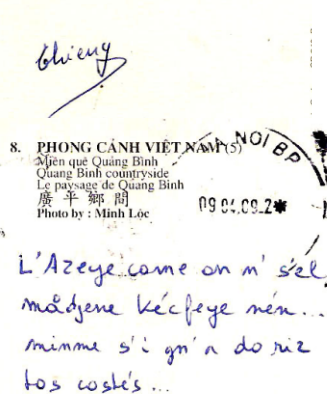 thieng
8. PHONG CẢNH VIỆT NAM (5)
Miền quê Quảng Bình
Quang Binh countryside
Le paysage de Quang Binh
廣 平 鄉 間
Photo by : Minh Lộc
NOI BP
09.04.09.2✱
L'Azeye come on n' s'el
mådjene kécfeye nén...
minme s'i gn' a do riz
tos costés...